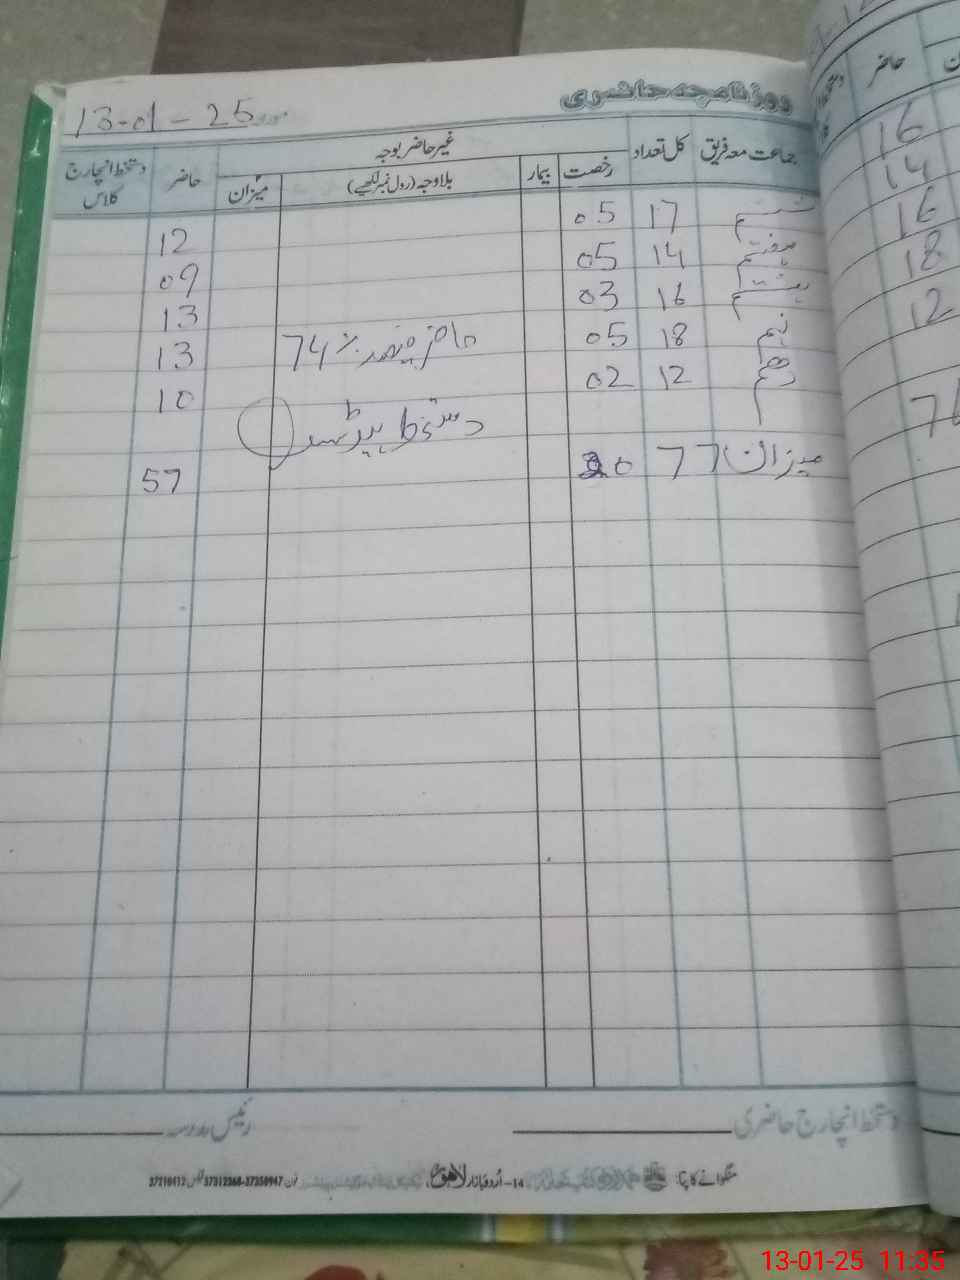 روزنامچہ حاضری
مورخہ 13-01-25
جماعت معہ فریق کل تعداد غیر حاضر بوجہ حاضر دستخط انچارج کلاس
رخصت بیمار بلاوجہ (رول نمبر لکھیے) میزان
ششم 17 05 12
ہفتم 14 05 09
ہشتم 16 03 13
نہم 18 05 حاضر فیصد 74% 13
دھم 12 02 10
دستخط ہیڈ
میزان 77 20 57
دستخط انچارج حاضری رئیس مدرسہ
منگوانے کا پتہ: 14-اُردو بازار لاہور فون 37350947-37312368 37210412
حاضر
16
14
16
18
12
13-01-25 11:35